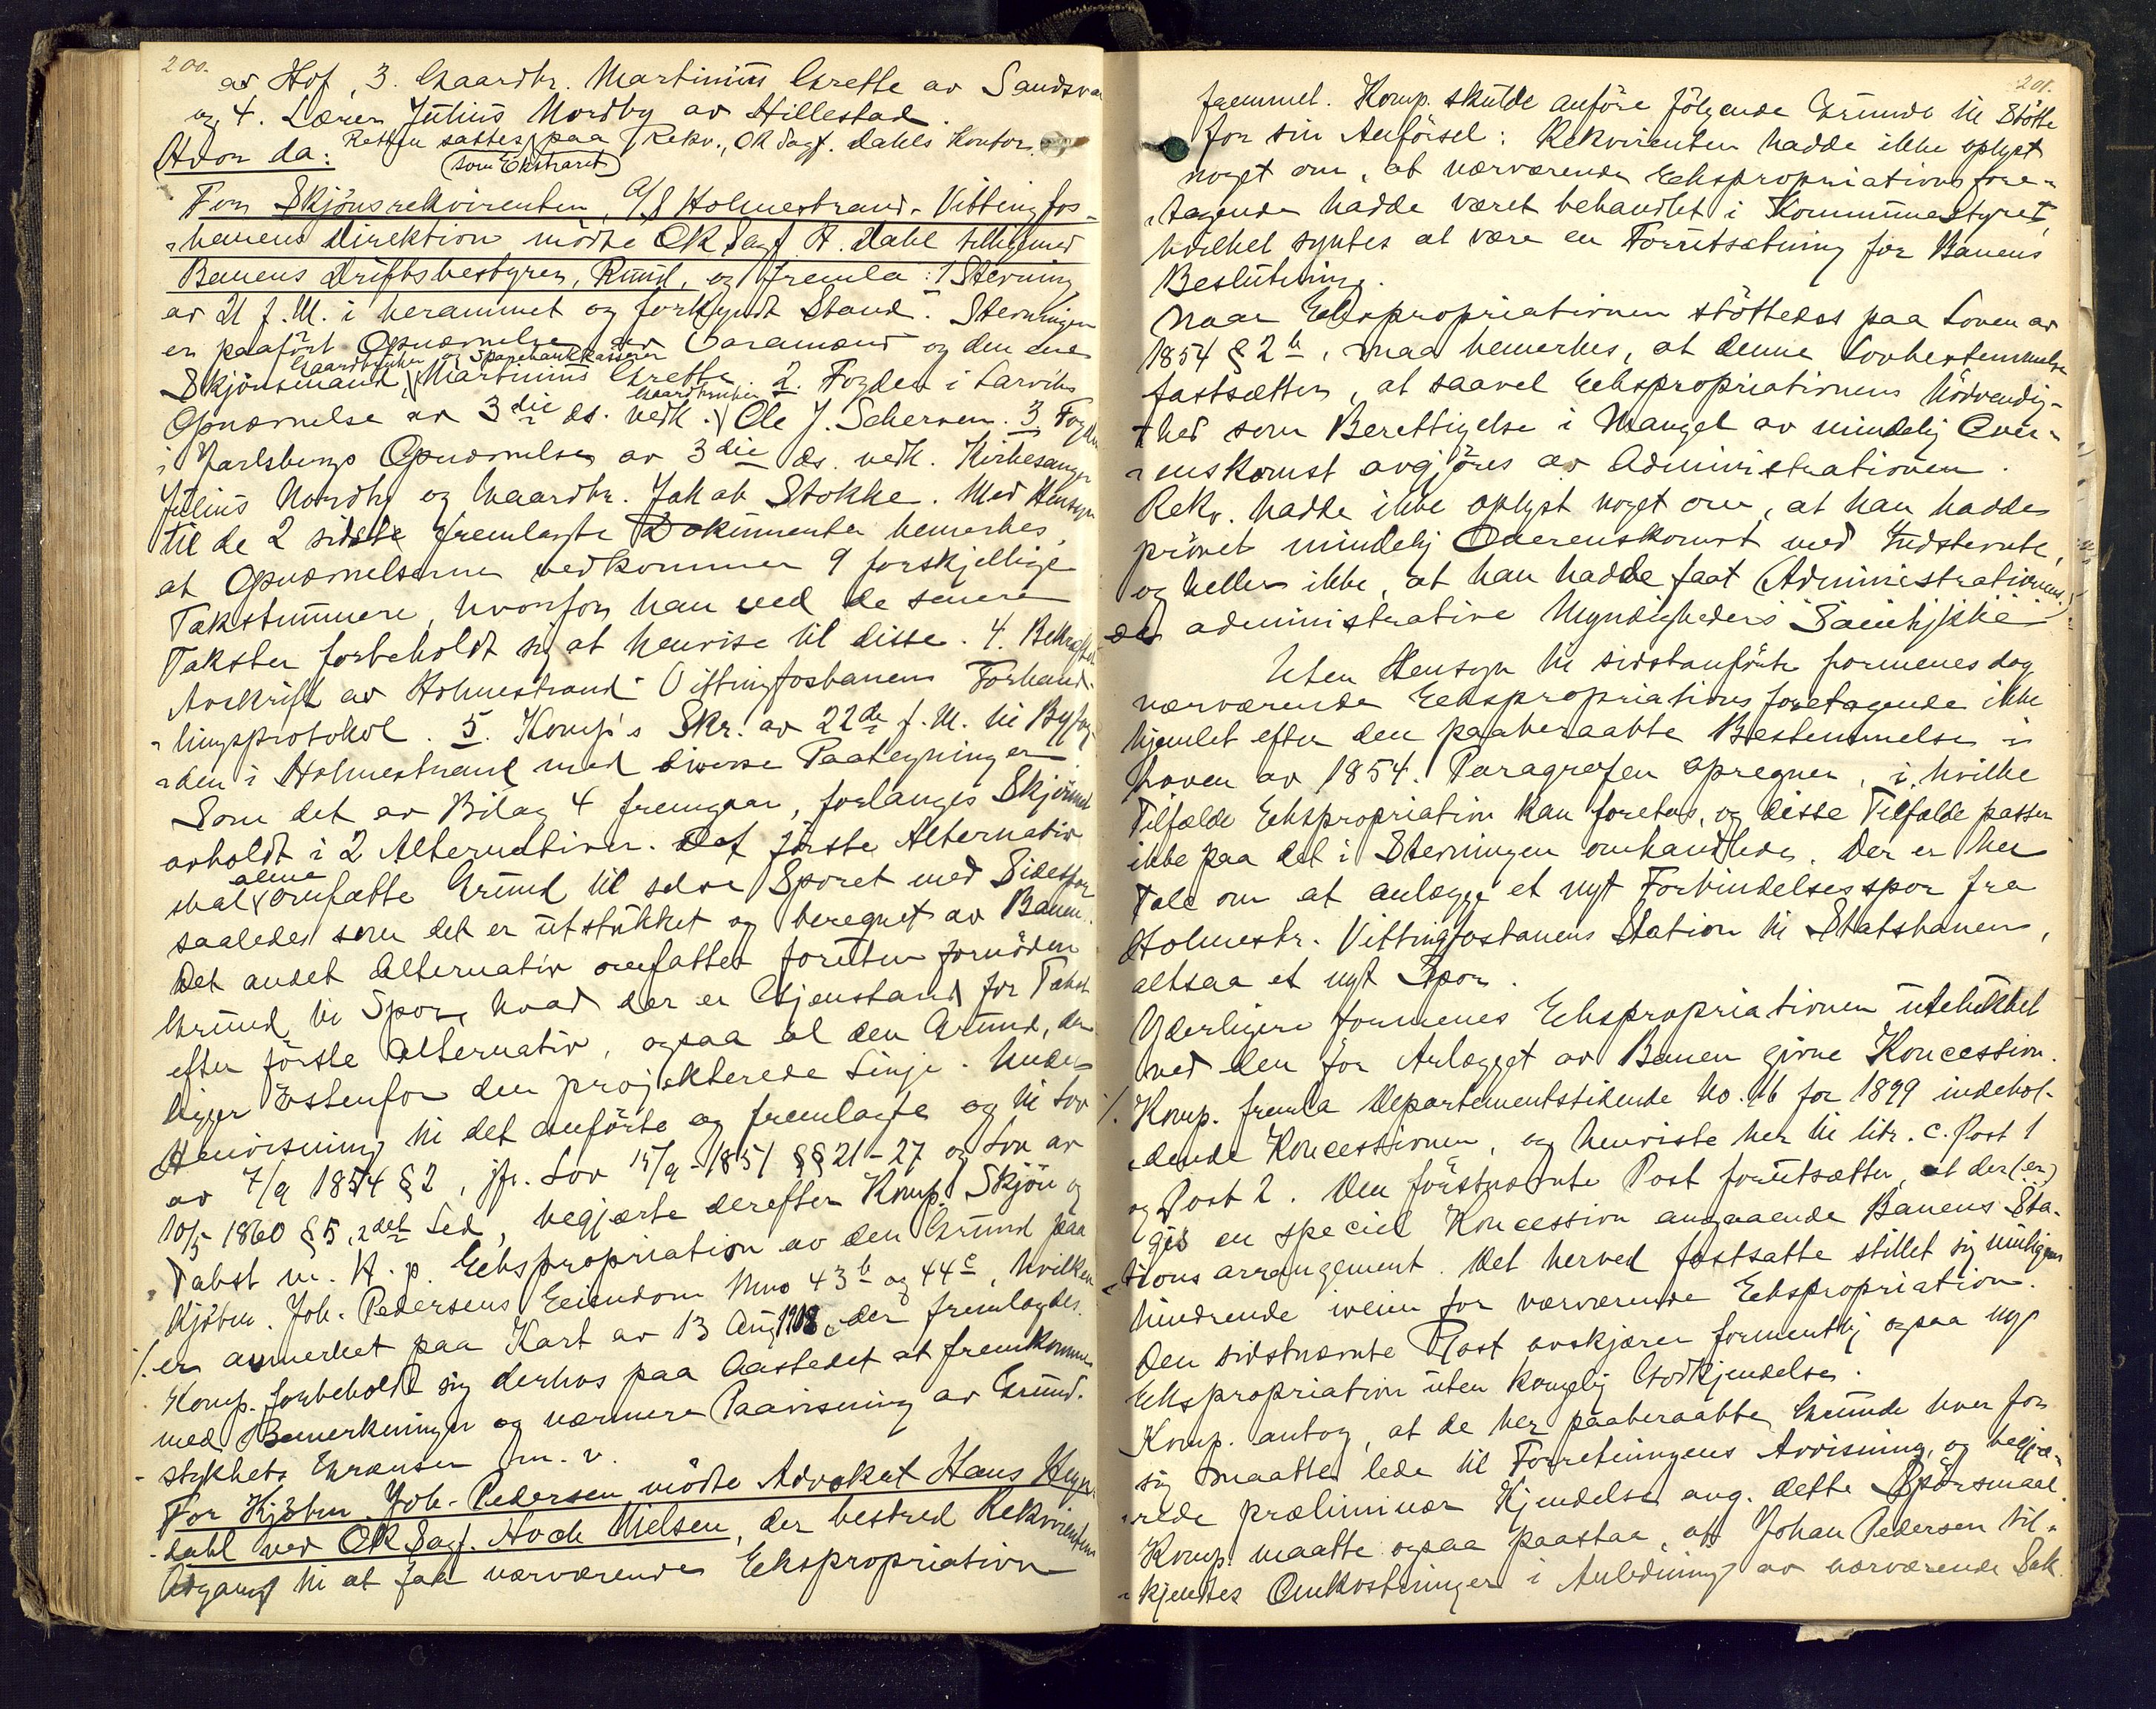 200.
av Hof, 3. Gaardbr. Martinius Grette av Sandsvær
og 4. Lærer Julius Nordby av Hillestad.
Retten sattes paa Rekv., OR Sagf. Dahls Kontor.
Hvor da: (som Ekstraret)
For Skjönsrekvirenten, A/S Holmestrand-Vittingfos-
banens Direktion mödte OR Sagf. A. Dahl tilligemed
Banens Driftsbestyrer, Ruud, og fremla: 1 Stevning
av 21 f. M. i berammet og forkyndt Stand. Stevningen
er paafört Opnævnelse av Lagmænd og den ene
Gaardbruker og Sparebankkasserer
Skjönsmand, Martinius Grette. 2. Fogden i Larviks
Gaardbruker
Opnævnelse av 3die ds. vedk. Ole J. Scherven. 3. Fogden
i Jarlsbergs Opnævnelse av 3die ds. vedk. Kirkesanger
Julius Nordby og Gaardbr. Jakob Stokke. Med Hensyn
til de 2 sidste fremlagte Dokumenter bemerkes,
at Opnævnelserne vedkommer 9 forskjellige
Takstnumere, hvorfor han ved de senere
Takster forbeholdt sig at henvise til disse. 4. Bekræftet
Avskrift av Holmestrand-Vittingfosbanens Forhand-
lingsprotokol. 5. Komp's Skr. av 22de f. M. til Byfog-
den i Holmestrand med diverse Paategninger.
Som det av Bilag 4 fremgaar, forlanges Skjönnet
avholdt i 2 Alternativer. Det förste Alternativ
alene
skal omfatte Grund til selve Sporet med Sidespor
saaledes som det er utstukket og beregnet av Banen.
Det andet Alternativ omfatter foruten fornöden
Grund til Spor, hvad der er Gjenstand for Takst
efter förste Alternativ, ogsaa al den Grund, der
ligger Östenfor den projekterede Linje. Under
Henvisning til det anförte og fremlagte og til Lov
av 7/9 1854 § 2, jfr. Lov 15/9-1851 §§ 21-27 og Lov av
10/5 1860 § 5, 2det Led, begjærte derefter Komp. Skjön og
Takst m. H. p. Ekspropriation av den Grund paa
Kjöbm. Joh. Pedersens Eiendom Mno 43b og 44c, hvilken
·/. er avmerket paa Kart av 13 Aug 1908, der fremlagdes.
Komp. forbeholdt sig derhos paa Aastedet at fremkomme
med Bemerkninger og nærmere Paavisning av Grund-
stykkets Grænser m. v.
For Kjöbm. Joh. Pedersen mödte Advokat Hans Heyer-
dahl ved OR Sagf. Hoch Nielsen, der bestred Rekvirentens
Adgang til at faa nærværende Ekspropriation
201.
fremmet. Komp. skulde anföre fölgende Grunde til Stötte
for sin Anförsel: Rekvirenten hadde ikke oplyst
noget om, at nærværende Ekspropriationsfore-
tagende hadde været behandlet i Kommunestyret,
hvilket syntes at være en Forutsætning for Banens
Beslutning.
Naar Ekspropriationen stöttedes paa Loven av
1854 § 2b, maa bemerkes, at denne Lovbestemmelse
fastsætter, at saavel Ekspropriationens Nödvendig-
hed som Berettigelse i Mangel av mindelig Over-
enskomst avgjöres av Administrationen.
Rekv. hadde ikke oplyst noget om, at han hadde
prövet mindelig Overenskomst med Indstevnte,
og heller ikke, at han hadde faat (Administrationens)
de administrative Myndigheders Samtykke
Uten Hensyn til sidstanförte formenes dog
nærværende Ekspropriationsforetagende ikke
hjemlet efter den paaberaabte Bestemmelse i
Loven av 1854. Paragrafen opregner, i hvilke
Tilfælde Ekspropriation kan foretas, og disse Tilfælde passer
ikke paa det i Stevningen omhandlede. Der er her
Tale om at anlægge et nyt Forbindelsesspor fra
Holmestr.-Vittingfosbanens Station til Statsbanens,
altsaa et nyt Spor.
Yderligere formenes Ekspropriationen utelukket
ved den for Anlægget av Banen givne Koncession.
·/. Komp. fremla Departementstidende No. 16 for 1899 indehol-
dende Koncessionen, og henviste her til litr. C. Post 1
og Post 2. Den förstnævnte Post forutsætter, at der (er)
gis en speciel Koncession angaaende Banens Sta-
tionsarrangement. Det herved fastsatte stillet sig muligens
hindrende iveien for nærværende Ekspropriation.
Den sidstnævnte Post avskjærer formentlig ogsaa ny
Ekspropriation uten kongelig Godkjendelse.
Komp. antog, at de her paaberaabte Grunde hver for
sig maatte lede til Forretningens Avvisning, og begjæ-
rede præliminær Kjendelse ang. dette Spörsmaal.
Komp. maatte ogsaa paastaa, at Johan Pedersen til-
kjendtes Omkostninger i Anledning av nærværende Sak.